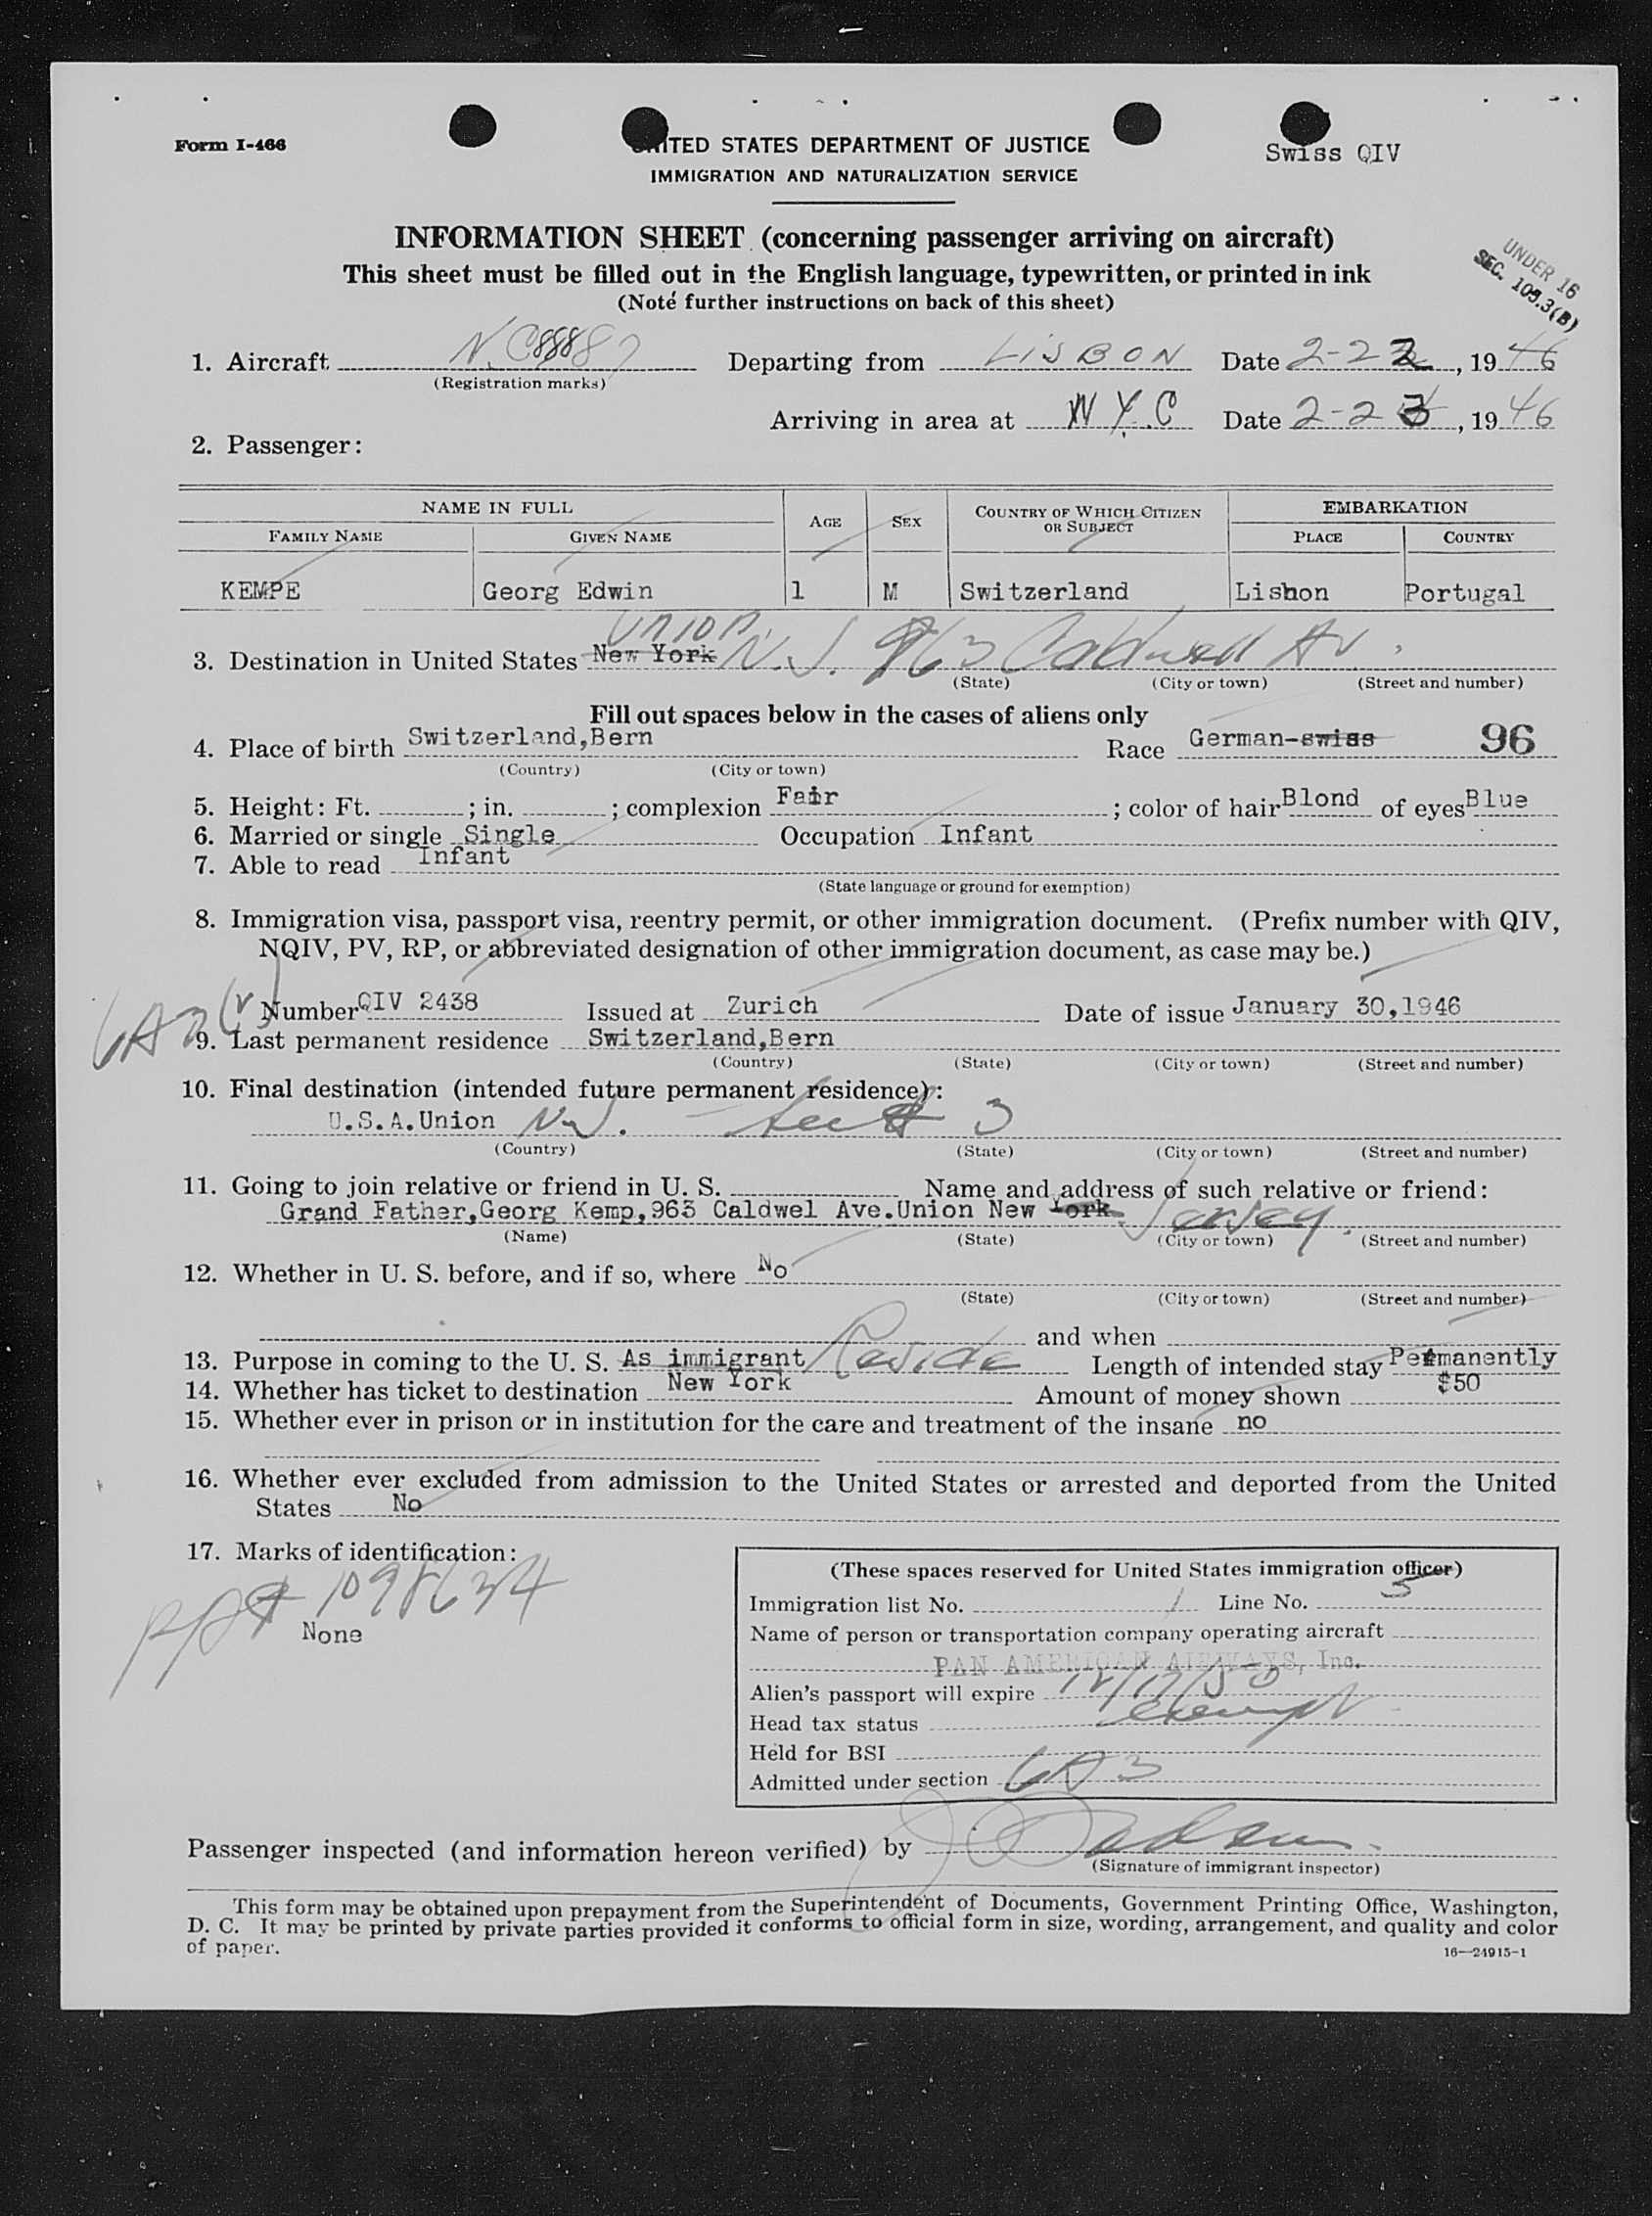 Form I-466
UNITED STATES DEPARTMENT OF JUSTICE
Swiss QIV
IMMIGRATION AND NATURALIZATION SERVICE
INFORMATION SHEET (concerning passenger arriving on aircraft)
This sheet must be filled out in the English language, typewritten, or printed in ink
(Note further instructions on back of this sheet)
UNDER 16
SEC. 105.3(B)
1. Aircraft N.C88887 Departing from LISBON Date 2-22, 1946
(Registration marks)
Arriving in area at N.Y.C Date 2-23, 1946
2. Passenger:
NAME IN FULL AGE SEX COUNTRY OF WHICH CITIZEN OR SUBJECT EMBARKATION
FAMILY NAME GIVEN NAME PLACE COUNTRY
KEMPE Georg Edwin 1 M Switzerland Lisbon Portugal
UNION
3. Destination in United States New York N.J. 963 Caldwell Av.
(State) (City or town) (Street and number)
Fill out spaces below in the cases of aliens only
4. Place of birth Switzerland,Bern Race German-swiss 96
(Country) (City or town)
5. Height: Ft. ; in. ; complexion Fair ; color of hair Blond of eyes Blue
6. Married or single Single Occupation Infant
7. Able to read Infant
(State language or ground for exemption)
8. Immigration visa, passport visa, reentry permit, or other immigration document. (Prefix number with QIV,
NQIV, PV, RP, or abbreviated designation of other immigration document, as case may be.)
Number QIV 2438 Issued at Zurich Date of issue January 30,1946
9. Last permanent residence Switzerland,Bern
(Country) (State) (City or town) (Street and number)
10. Final destination (intended future permanent residence):
U.S.A.Union N.J. - See # 3
(Country) (State) (City or town) (Street and number)
11. Going to join relative or friend in U. S. Name and address of such relative or friend:
Grand Father,Georg Kemp,963 Caldwel Ave.Union New York Jersey.
(Name) (State) (City or town) (Street and number)
12. Whether in U. S. before, and if so, where No
(State) (City or town) (Street and number)
and when
13. Purpose in coming to the U. S. As immigrant Reside Length of intended stay Permanently
14. Whether has ticket to destination New York Amount of money shown $50
15. Whether ever in prison or in institution for the care and treatment of the insane no
16. Whether ever excluded from admission to the United States or arrested and deported from the United
States No
17. Marks of identification:
PP# 1098634
None
(These spaces reserved for United States immigration officer)
Immigration list No. 1 Line No. 5
Name of person or transportation company operating aircraft
PAN AMERICAN AIRWAYS, Inc.
Alien's passport will expire 12/17/50
Head tax status exempt
Held for BSI
Admitted under section 6A3
Passenger inspected (and information hereon verified) by
(Signature of immigrant inspector)
This form may be obtained upon prepayment from the Superintendent of Documents, Government Printing Office, Washington,
D. C. It may be printed by private parties provided it conforms to official form in size, wording, arrangement, and quality and color
of paper.
16—24915-1